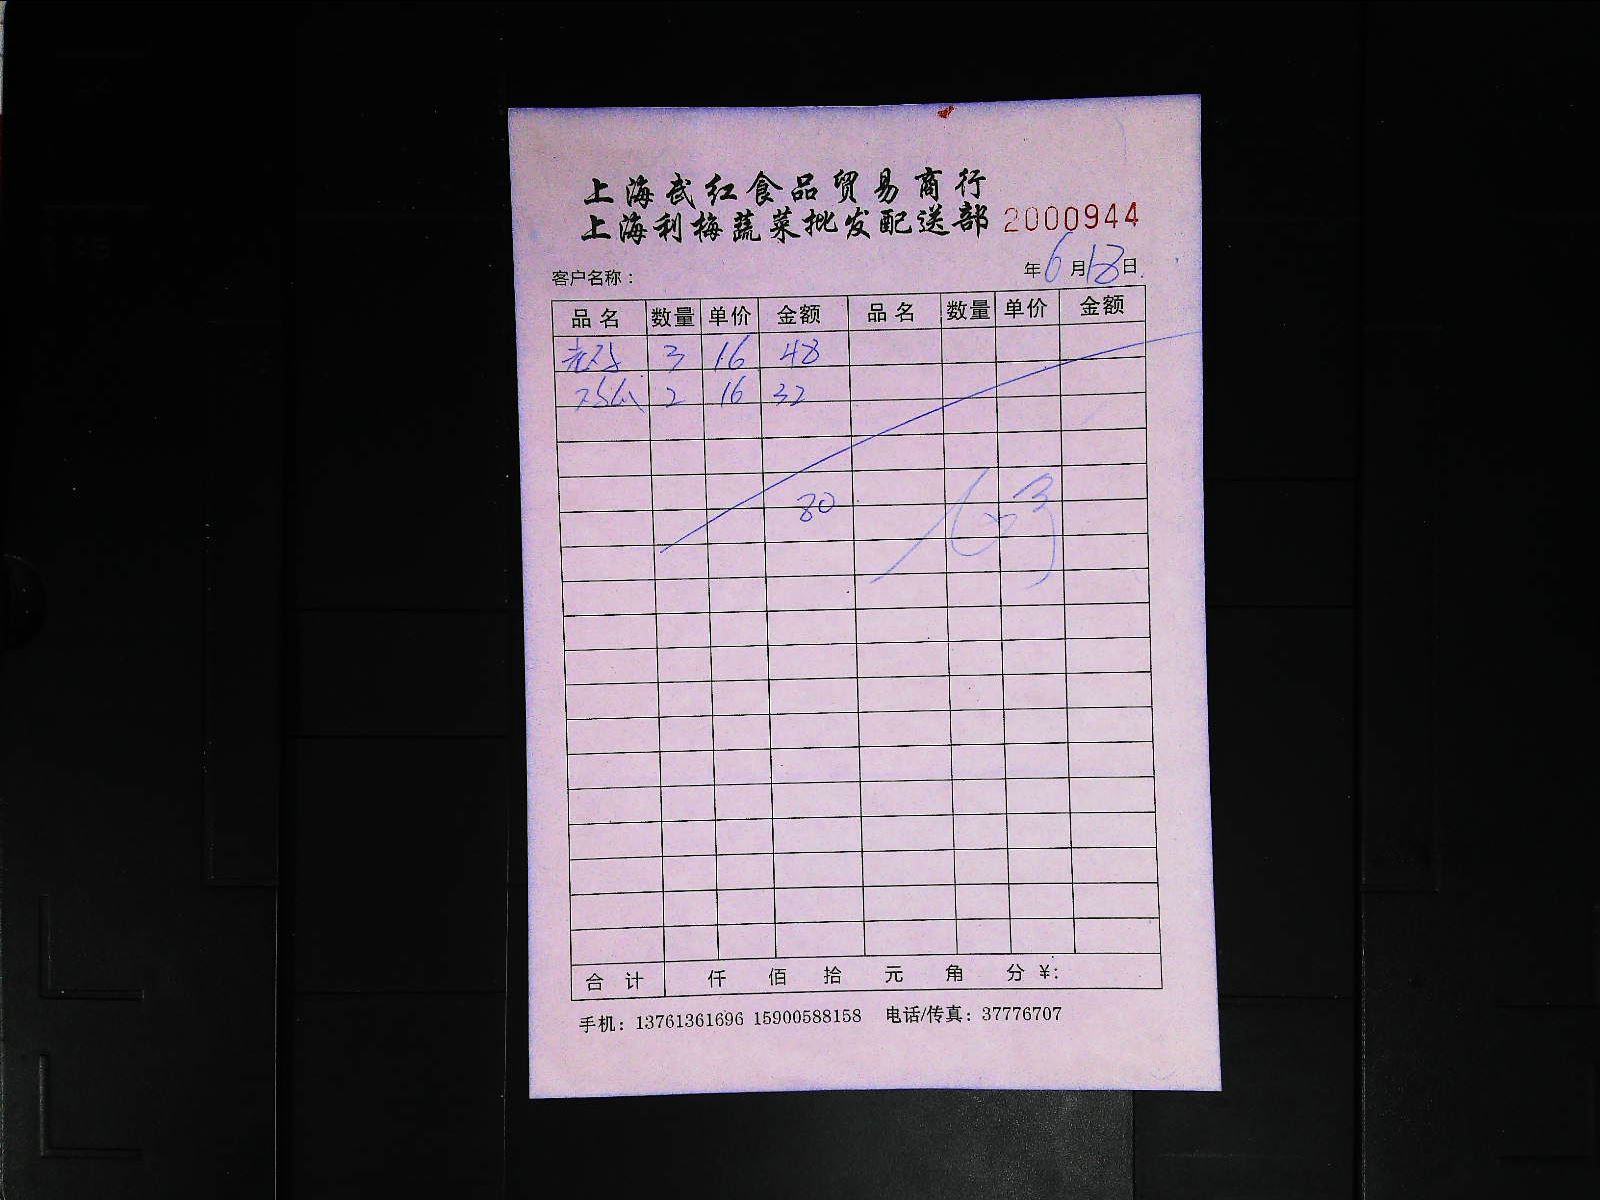 上海武红食品贸易商行
上海利梅蔬菜批发配送部 2000944
客户名称： 年6月18日
品名 数量 单价 金额 品名 数量 单价 金额
3 16 48
2 16 32
80
合计 仟 佰 拾 元 角 分 ¥:
手机：13761361696 15900588158 电话/传真：37776707